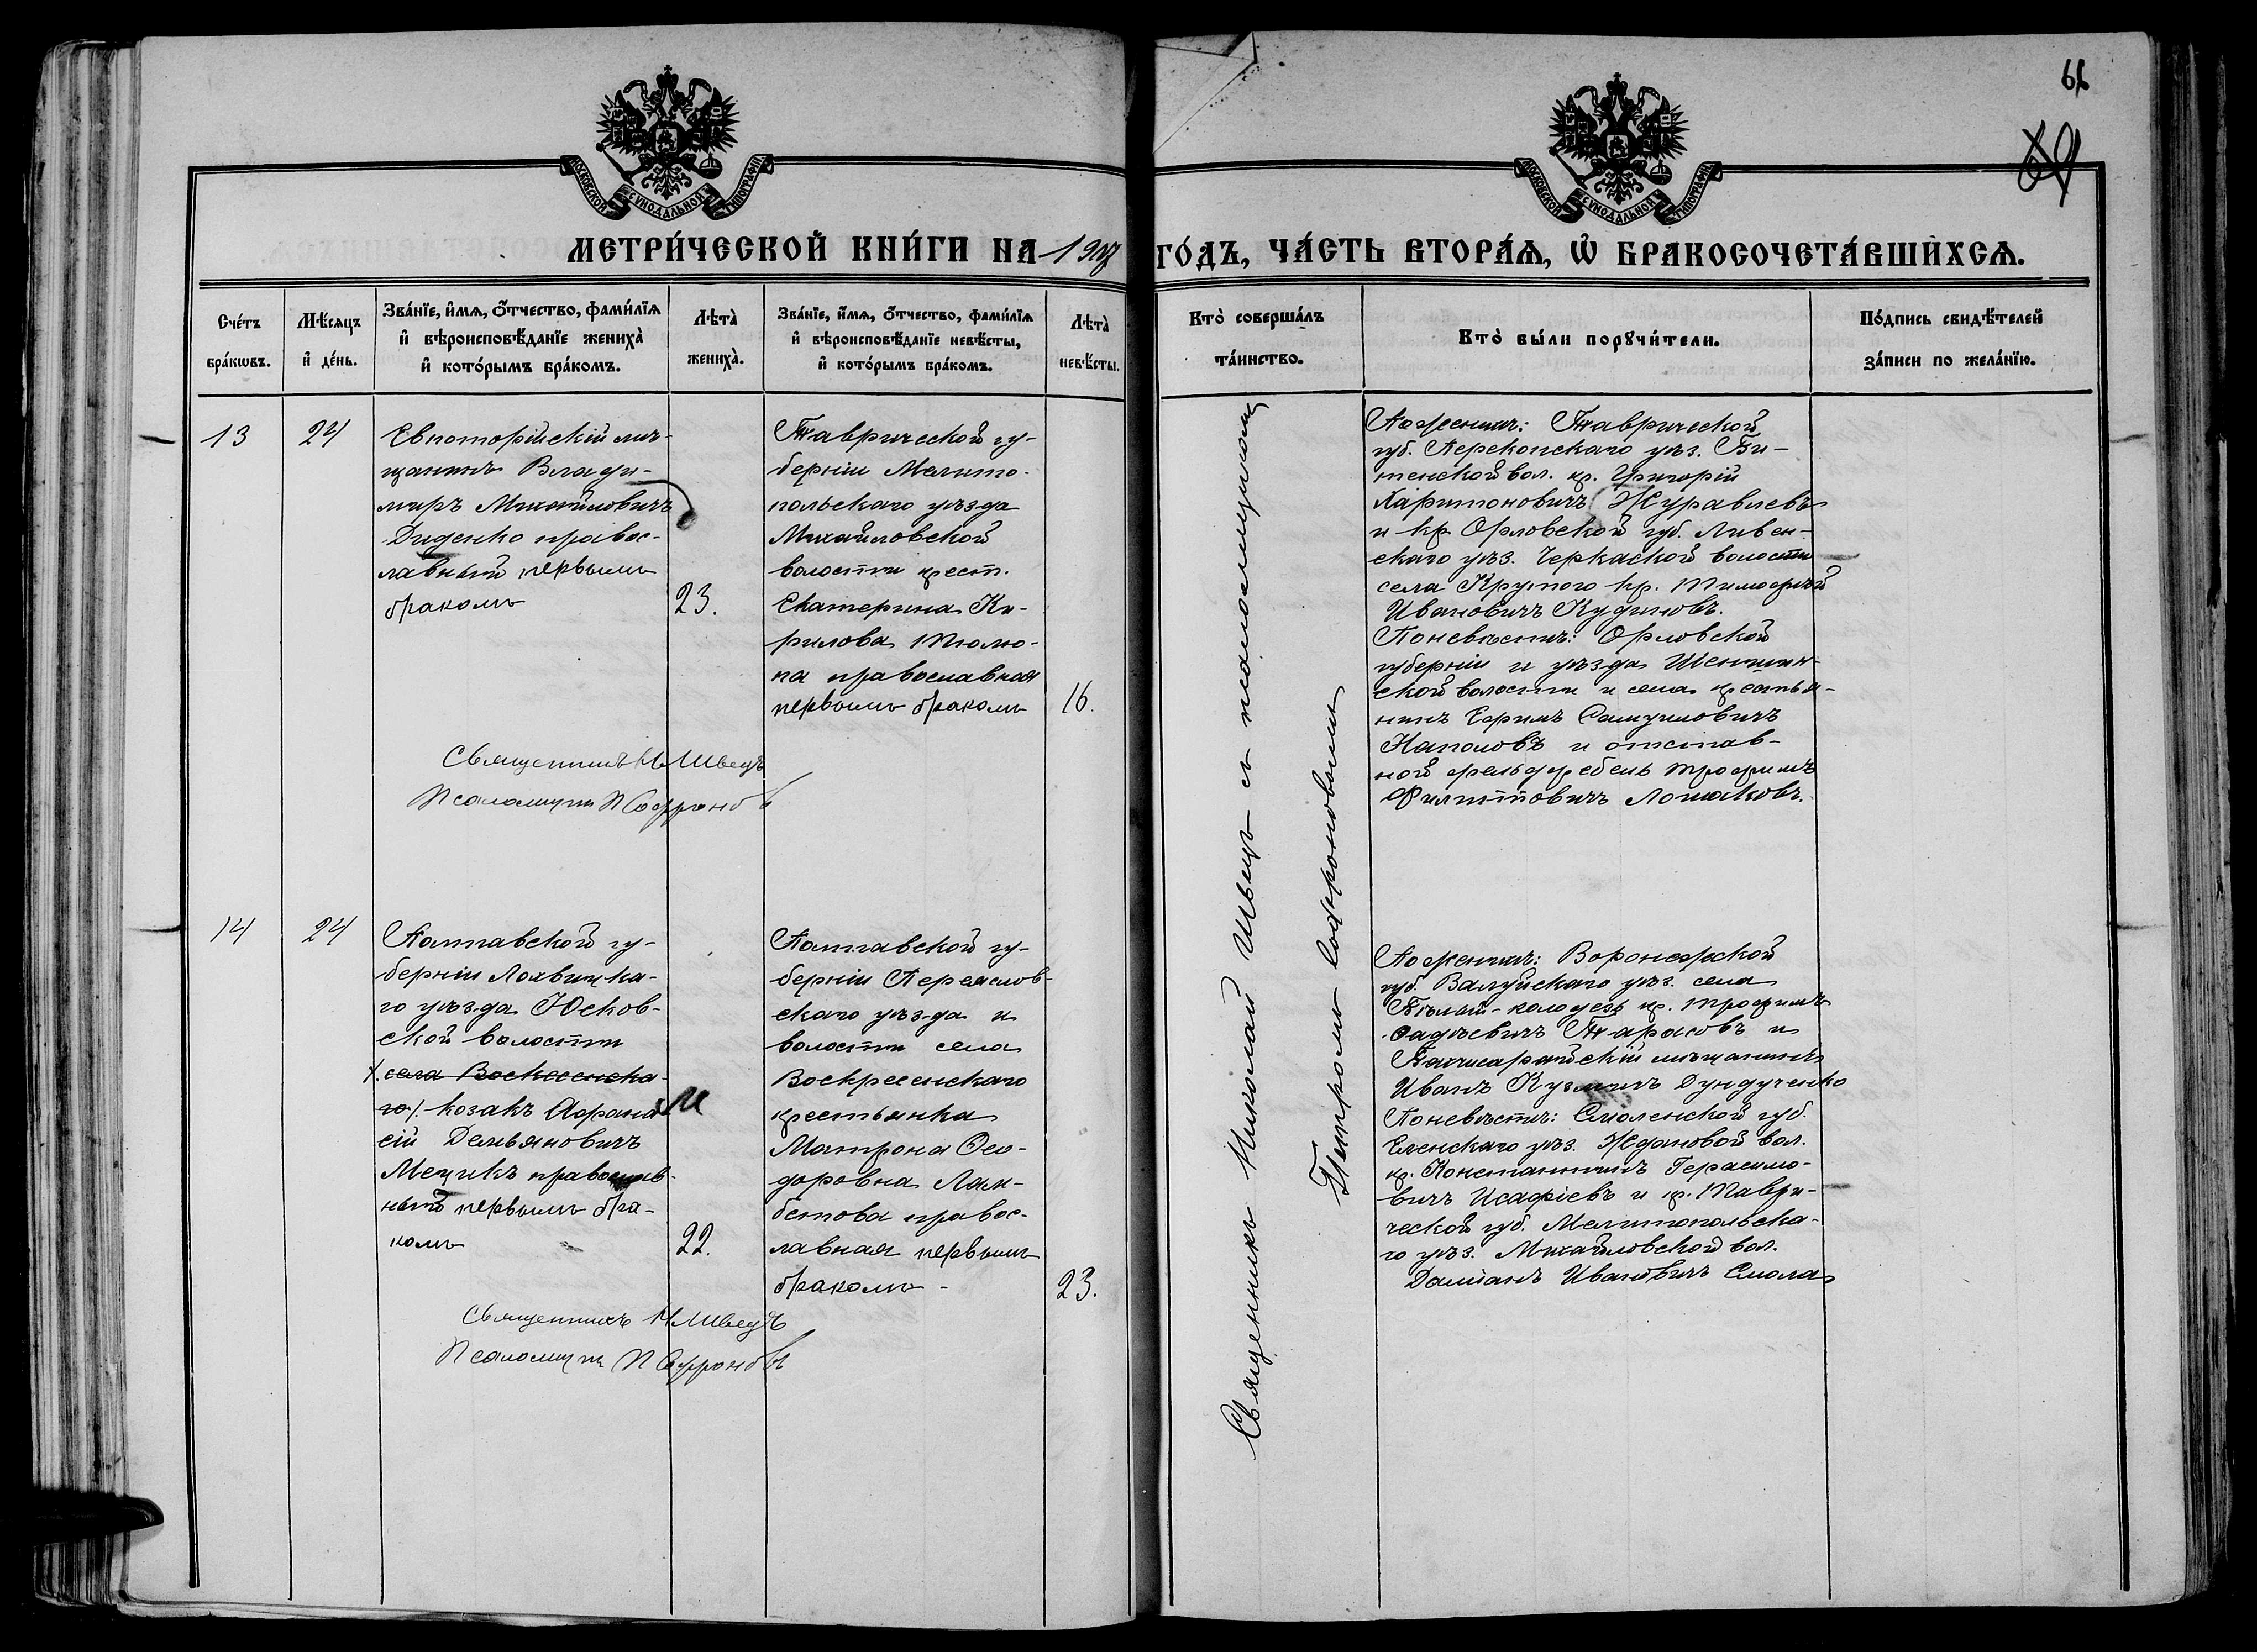 66
МОСКОВСКОЙ СѴНОДАЛЬНОЙ ТИПОГРАФІИ
МОСКОВСКОЙ СѴНОДАЛЬНОЙ ТИПОГРАФІИ
МЕТРИ́ЧЕСКОЙ КНИ́ГИ НА 1907 ГО́ДЪ, ЧА́СТЬ ВТОРА́Ѧ, Ѽ БРАКОСОЧЕТА́ВШИХСѦ.
Сче́тъ
бра́кѡвъ.
Мѣ́сяцъ
и҆ де́нь.
Зва́нїе, и҆́мя, ѻ҆́тчество, фами́лїя
и҆ вѣроисповѣ́данїе жениха̀
и҆ кото́рымъ бра́комъ.
Лѣта̀
жениха̀.
Зва́нїе, и҆́мя, ѻ҆́тчество, фами́лїя
и҆ вѣроисповѣ́данїе невѣ́сты,
и҆ кото́рымъ бра́комъ.
Лѣта̀
невѣ́сты.
Кто̀ соверша́лъ
та́инство.
Кто̀ бы́ли порꙋчи́тели.
По́дпись свидѣ́телей
за́писи по жела́нїю.
13
24
Евпаторійскій мѣ-
щанинъ Влади-
миръ Михайловичъ
Диденко правос-
лавный первымъ
бракомъ
23.
Таврической гу-
берніи Мелито-
польскаго уѣзда
Михайловской
волости крест.
Екатерина Ки-
рилова Тюлю-
па православная
первымъ бракомъ
16.
Священникъ Н Швецъ
Псаломщикъ П Софроновъ
Священникъ Николай Швецъ съ псаломщикомъ
Петромъ Софроновымъ
По женихѣ: Таврической
губ. Перекопскаго уѣз. Би-
тенской вол. кр. Григорій
Харитоновичъ Журавлевъ
и кр. Орловской губ. Ливен-
скаго уѣз. Черкаской волости
села Крутого кр. Тимофѣй
Ивановичъ Кудиновъ.
По невѣстѣ: Орловской
губерніи и уѣзда Шеншин-
ской волости и села крестья-
нинъ Ефимъ Самуиловичъ
Наполовъ и отстав-
ной фельдфебель Трофимъ
Филипповичъ Лошаковъ.
14
24
Полтавской гу-
берніи Лохвицка-
го уѣзда Юсков-
ской волости
села Воскресенска-
го козакъ Афана-
сій Демьяновичъ
Мецикъ православ-
ный первымъ бра-
комъ
22.
Полтавской гу-
берніи Переяслов-
скаго уѣзда и
волости села
Воскресенскаго
крестьянка
Матрона Ѳео-
доровна Лам-
бетова правос-
лавная первымъ
бракомъ -
23.
Священникъ Н Швецъ
Псаломщикъ П Софроновъ
По женихѣ: Воронежской
губ. Валуйскаго уѣз. села
Бѣлый-колодезь кр. Трофимъ
Фадѣевичъ Тарасовъ и
Бахчисарайскій мѣщанинъ
Иванъ Кузмичъ Дундученко
По невѣстѣ: Смоленской губ.
Еленскаго уѣз. Ждановой вол.
кр. Константинъ Герасимо-
вичъ Исафіевъ и кр. Таври-
ческой губ. Мелитопольска-
го уѣз. Михайловской вол.
Даміанъ Ивановичъ Смола